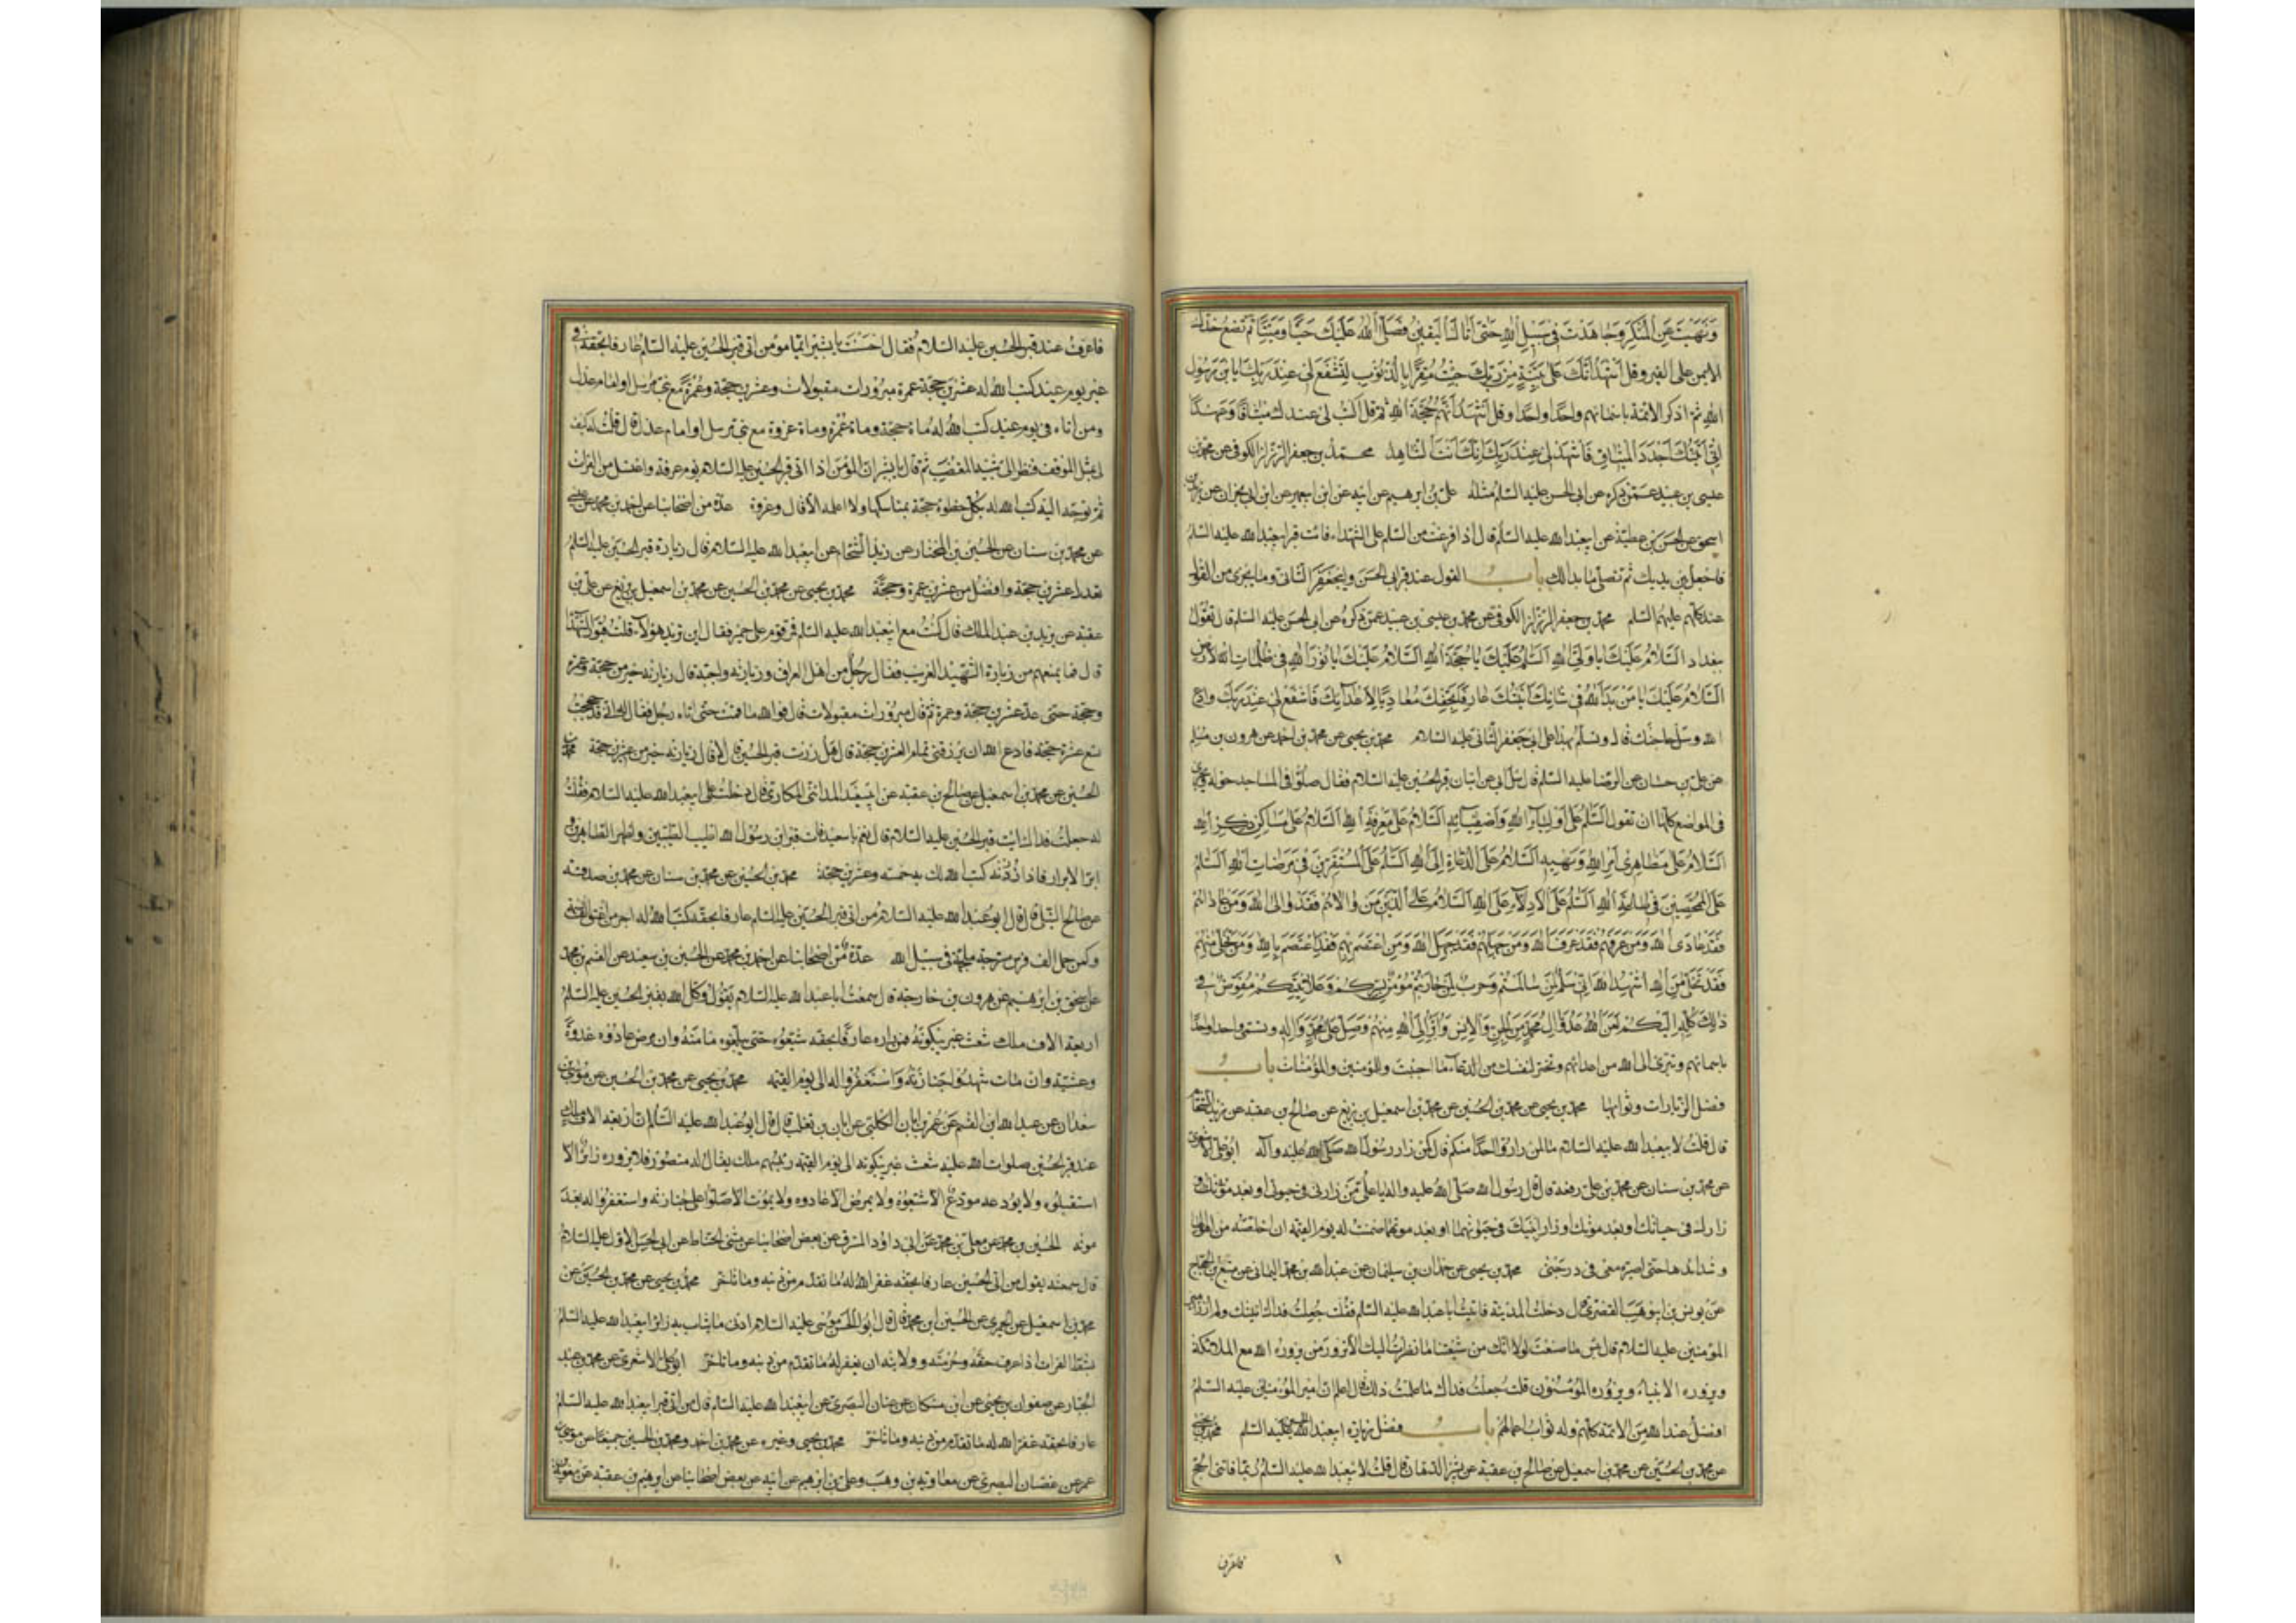 وَنَهَيْتَ عَنِ الْمُنْكَرِ وَجَاهَدْتَ فِي سَبِيلِ اللهِ حَتَّى أَتَاكَ الْيَقِينُ فَصَلَّى اللهُ عَلَيْكَ حَيًّا وَمَيِّتًا ثم تضع خدك
الايمن على القبر وقل أَشْهَدُ أَنَّكَ عَلَى بَيِّنَةٍ مِنْ رَبِّكَ جِئْتُ مُقِرًّا بِالذُّنُوبِ لِتَشْفَعَ لِي عِنْدَ رَبِّكَ يَا بْنَ رَسُولِ
الله ثم اذكر الائمة باسمائهم واحدا واحدا وقل أَشْهَدُ أَنَّهُمْ حُجَّةُ اللهِ ثم قل اكْتُبْ لِي عِنْدَكَ مِيثَاقًا وَعَهْدًا
إِنِّي أَتَيْتُكَ أُجَدِّدُ الْمِيثَاقَ فَاشْهَدْ لِي عِنْدَ رَبِّكَ إِنَّكَ أَنْتَ الشَّاهِدُ محمد بن جعفر الرزاز الكوفي عن محمد بن
عيسى بن عبيد عمن ذكره عن ابى الحسن عليه السلم مثله على بن ابرهيم عن ابيه عن ابن ابيعمير عن ابن ابى نجران عن يزيد بن
اسحق عن الحسن بن عطية عن ابيعبدالله عليه السلم قال اذا فرغت من السلم على الشهداء فائت قبر ابيعبدالله عليه السلم
فاجعله بين يديك ثم تصلى ما بدا لك باب القول عند قبر ابى الحسن وابيجعفر الثانى وما يجزى من القول
عند كلهم عليهم السلم محمد بن جعفر الرزاز الكوفى عن محمد بن عيسى بن عبيد عمن ذكره عن ابى الحسن عليه السلم قال تقول
ببغداد السَّلَامُ عَلَيْكَ يَا وَلِيَّ اللهِ السَّلَمُ عَلَيْكَ يَا حُجَّةَ اللهِ السَّلَامُ عَلَيْكَ يَا نُورَ اللهِ فِي ظُلُمَاتِ الْأَرْضِ
السَّلَامُ عَلَيْكَ يَا مَنْ بَدَا لِلَّهِ فِي شَانِهِ أَتَيْتُكَ عَارِفًا بِحَقِّكَ مُعَادِيًا لِأَعْدَآئِكَ فَاشْفَعْ لِي عِنْدَ رَبِّكَ وادع
الله وسل حاجتك قال وتسلم بهذا على ابى جعفر الثانى عليه السلام محمد بن يحيى عن محمد بن احمد عن هرون بن مسلم
عن على بن حسان عن الرضا عليه السلم قال سئل ابى عن اتيان قبر الحسين عليه السلام فقال صلوا فى المساجد حوله ويجزى
فى المواضع كلها ان تقول السَّلَمُ عَلَى أَوْلِيَآءِ اللهِ وَأَصْفِيَآئِهِ السَّلَامُ عَلَى مَعْرِفَةِ اللهِ السَّلَامُ عَلَى مَسَاكِنِ ذِكْرِ اللهِ
السَّلَامُ عَلَى مَظَاهِرِي أَمْرِ اللهِ وَنَهْيِهِ السَّلَامُ عَلَى الدُّعَاةِ إِلَى اللهِ السَّلَمُ عَلَى الْمُسْتَقِرِّينَ فِي مَرْضَاتِ اللهِ السَّلَمُ
عَلَى الْمُمَحَّصِينَ فِي طَاعَةِ اللهِ السَّلَمُ عَلَى الْأَدِلَّآءِ عَلَى اللهِ السَّلَامُ عَلَى الَّذِينَ مَنْ وَالَاهُمْ فَقَدْ وَالَى اللهَ وَمَنْ عَادَاهُمْ
فَقَدْ عَادَى اللهَ وَمَنْ عَرَفَهُمْ فَقَدْ عَرَفَ اللهَ وَمَنْ جَهِلَهُمْ فَقَدْ جَهِلَ اللهَ وَمَنِ اعْتَصَمَ بِهِمْ فَقَدِ اعْتَصَمَ بِاللهِ وَمَنْ تَخَلَّى مِنْهُمْ
فَقَدْ تَخَلَّى مِنَ اللهِ أُشْهِدُ اللهَ أَنِّي سِلْمٌ لِمَنْ سَالَمْتُمْ وَحَرْبٌ لِمَنْ حَارَبْتُمْ مُؤْمِنٌ بِسِرِّكُمْ وَعَلَانِيَتِكُمْ مُفَوِّضٌ فِي
ذَلِكَ كُلِّهِ إِلَيْكُمْ لَعَنَ اللهُ عَدُوَّ آلِ مُحَمَّدٍ مِنَ الْجِنِّ وَالْإِنْسِ وَأَبْرَأُ إِلَى اللهِ مِنْهُمْ وَصَلَّى عَلَى مُحَمَّدٍ وَآلِهِ وتسمى واحدا واحدا
باسمائهم وتبرئ الى الله من اعدائهم وتخير لنفسك من الدعاء ما احببت وللمؤمنين والمؤمنات باب
فضل الزيارات وثوابها محمد بن يحيى عن محمد بن الحسين عن محمد بن اسمعيل بن بزيع عن صالح بن عقبة عن زيد الشحام
قال قلت لابيعبدالله عليه السلام ما لمن زار واحدا منكم قال كمن زار رسول الله صلى الله عليه وآله ابوعلى الاشعرى
عن محمد بن سنان عن محمد بن على رفعه قال قال رسول الله صلى الله عليه واله يا على من زارنى فى حيوتى او بعد موتى او
زارك فى حياتك او بعد موتك او زار ابنيك فى حيوتهما او بعد موتهما ضمنت له يوم القيمة ان اخلصه من اهوالها
وشدائدها حتى اصيره معى فى درجتى محمد بن يحيى عن حمدان بن سليمان عن عبدالله بن محمد اليمانى عن منيع بن الحجاج
عن يونس بن ابى وهب القصرى قال دخلت المدينة فاتيت اباعبدالله عليه السلم فقلت جعلت فداك اتيتك ولم ازر امير
المؤمنين عليه السلام قال بئس ما صنعت لولا انك من شيعتنا ما نظرت اليك الا تزور من يزوره الله مع الملائكة
ويزوره الانبياء ويزوره المؤمنون قلت جعلت فداك ما علمت ذلك قال اعلم ان امير المؤمنين عليه السلم
افضل عند الله من الائمة كلهم وله ثواب اعمالهم باب فضل زيارة ابيعبدالله الحسين عليه السلم محمد بن يحيى
عن محمد بن الحسين عن محمد بن اسمعيل عن صالح بن عقبة عن بشير الدهان قال قلت لابيعبدالله عليه السلم ربما فاتنى الحج
فاعرف
فاعرف عند قبر الحسين عليه السلام فقال احسنت يا بشير ايما مؤمن اتى قبر الحسين عليه السلم عارفا بحقه فى
غير يوم عيد كتب الله له عشرين حجة عمرة مبرورات مقبولات وعشرين حجة وعمرة مع نبى مرسل او امام عدل
ومن اتاه فى يوم عيد كتب الله له مأة حجة ومأة عمرة ومأة غزوة مع نبى مرسل او امام عدل قال قلت له كيف
لى بمثل الموقف فنظر الى شبيه المغضب ثم قال يا بشير ان المؤمن اذا اتى قبر الحسين عليه السلام يوم عرفة واغتسل من الفرات
ثم توجه اليه كتب الله له بكل خطوة حجة بمناسكها ولا اعلمه الا قال وغزوة عدة من اصحابنا عن احمد بن محمد بن عيسى
عن محمد بن سنان عن الحسين بن المختار عن زيد الشحام عن ابيعبدالله عليه السلام قال زيارة قبر الحسين عليه السلم
تعدل عشرين حجة وافضل من عشرين عمرة وحجة محمد بن يحيى عن محمد بن الحسين عن محمد بن اسمعيل بن بزيع عن صالح بن
عقبة عن يزيد بن عبدالملك قال كنت مع ابيعبدالله عليه السلم فمر قوم على حمير فقال اين تريد هؤلاء قلت قبور الشهداء
قال فما يمنعهم من زيارة الشهيد الغريب فقال رجل من اهل العراق وزيارته واجبة قال زيارته خير من حجة وعمرة
وحجة حتى عد عشرين حجة وعمرة ثم قال مبرورات مقبولات قال فوالله ما قمت حتى اتاه رجل فقال له انى قد حججت
تسع عشرة حجة فادع الله ان يرزقنى تمام العشرين حجة قال هل زرت قبر الحسين قال لا قال زيارته خير من عشرين حجة محمد بن
الحسين عن محمد بن اسمعيل عن صالح بن عقبة عن ابى سعيد المدائنى المكارى قال دخلت على ابيعبدالله عليه السلام فقلت
له جعلت فداك ائت قبر الحسين عليه السلام قال نعم يا سعيد فائت قبر ابن رسول الله اطيب الطيبين واطهر الطاهرين و
ابر الابرار فاذا زرته كتب الله لك به خمسة وعشرين حجة محمد بن الحسين عن محمد بن سنان عن محمد بن صدقة
عن صالح النيلى قال قال ابوعبدالله عليه السلام من اتى قبر الحسين عليه السلم عارفا بحقه كتب الله له اجر من اعتق الف نسمة
وكمن حمل الف فرس مسرجة ملجمة فى سبيل الله عدة من اصحابنا عن احمد بن محمد عن الحسين بن سعيد عن القسم بن محمد
عن اسحق بن ابرهيم عن هرون بن خارجة قال سمعت اباعبدالله عليه السلام يقول وكل الله بقبر الحسين عليه السلم
اربعة الاف ملك شعث غبر يبكونه فمن زاره عارفا بحقه شيعوه حتى يبلغوه مامنه وان مرض عادوه غدوة
وعشية وان مات شهدوا جنازته واستغفروا له الى يوم القيمة محمد بن يحيى عن محمد بن الحسين عن موسى بن
سعدان عن عبدالله ابن القسم عن عمر بن ابان الكلبى عن ابان بن تغلب قال قال ابوعبدالله عليه السلم ان اربعة الاف ملك
عند قبر الحسين صلوات الله عليه شعث غبر يبكونه الى يوم القيمة رئيسهم ملك يقال له منصور فلا يزوره زائر الا
استقبلوه ولا يودعه مودع الا شيعوه ولا يمرض الا عادوه ولا يموت الا صلوا على جنازته واستغفروا له بعد
موته الحسين بن محمد عن معلى بن محمد عن ابى داود المسترق عن بعض اصحابنا عن مثنى الحناط عن ابى الحسن الاول عليه السلام
قال سمعته يقول من اتى الحسين عارفا بحقه غفر الله له ما تقدم من ذنبه وما تاخر محمد بن يحيى عن محمد بن الحسين عن
محمد بن اسمعيل عن الخيبرى عن الحسين ابن محمد قال قال ابوالحسن موسى عليه السلام ادنى ما يثاب به زائر ابيعبدالله عليه السلم
بشط الفرات اذا عرف حقه وحرمته وولايته ان يغفر له ما تقدم من ذنبه وما تاخر ابوعلى الاشعرى عن محمد بن عبد
الجبار عن صفوان بن يحيى عن ابن مسكان عن غسان البصرى عن ابيعبدالله عليه السلم قال من اتى قبر ابيعبدالله عليه السلم
عارفا بحقه غفر الله له ما تقدم من ذنبه وما تاخر محمد بن يحيى وغيره عن محمد بن احمد ومحمد بن الحسين جميعا عن موسى بن
عمر عن غسان البصرى عن معاوية بن وهب وعلى بن ابرهيم عن ابيه عن بعض اصحابنا عن ابرهيم بن عقبة عن معوية بن